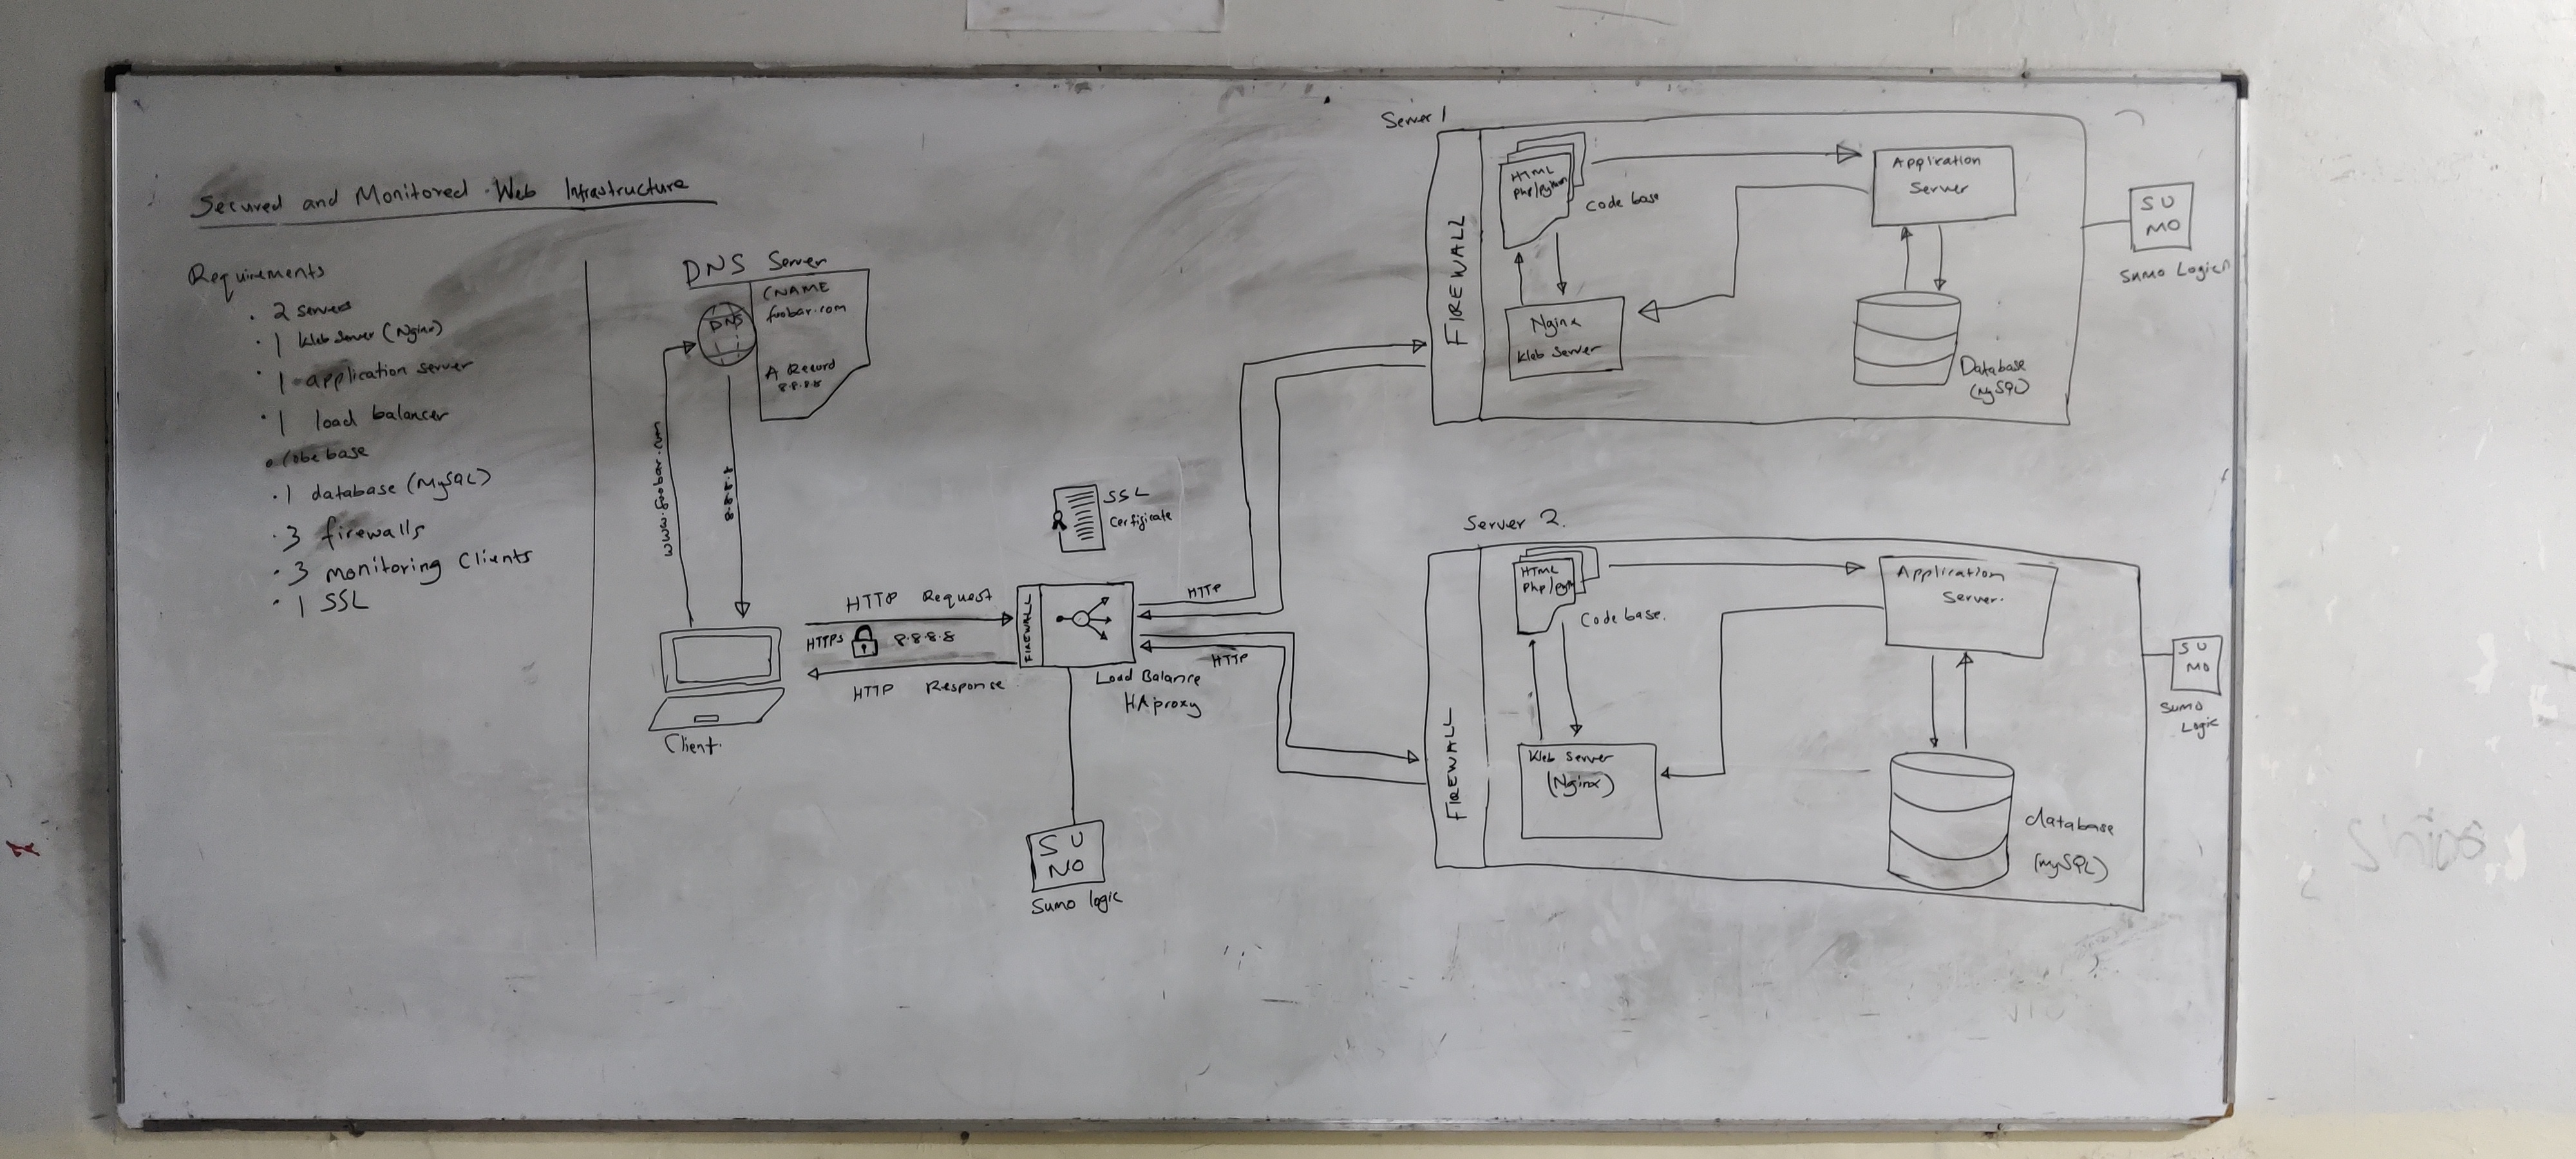 Secured and Monitored Web Infrastructure
Requirements
. 2 servers
. 1 Web Server (Nginx)
. 1 application server
. 1 load balancer
. Code base
. 1 database (MySQL)
. 3 firewalls
. 3 monitoring Clients
. 1 SSL
DNS Server
DNS
CNAME
foobar.com
A Record
8.8.8.8
www.foobar.com
8.8.8.8
Client.
HTTP Request
HTTPS
8.8.8.8
HTTP Response
SSL
Cerfificate
FIREWALL
Load Balance
HAproxy
HTTP
HTTP
SU
MO
Sumo logic
Server 1
FIREWALL
HTML
Php/python
Code base
Application
Server
Nginx
Web Server
Database
(MySQL)
SU
MO
Sumo Logic
Server 2.
FIREWALL
HTML
Php/python
Code base.
Application
Server.
Web Server
(Nginx)
database
(MySQL)
SU
MO
Sumo
Logic